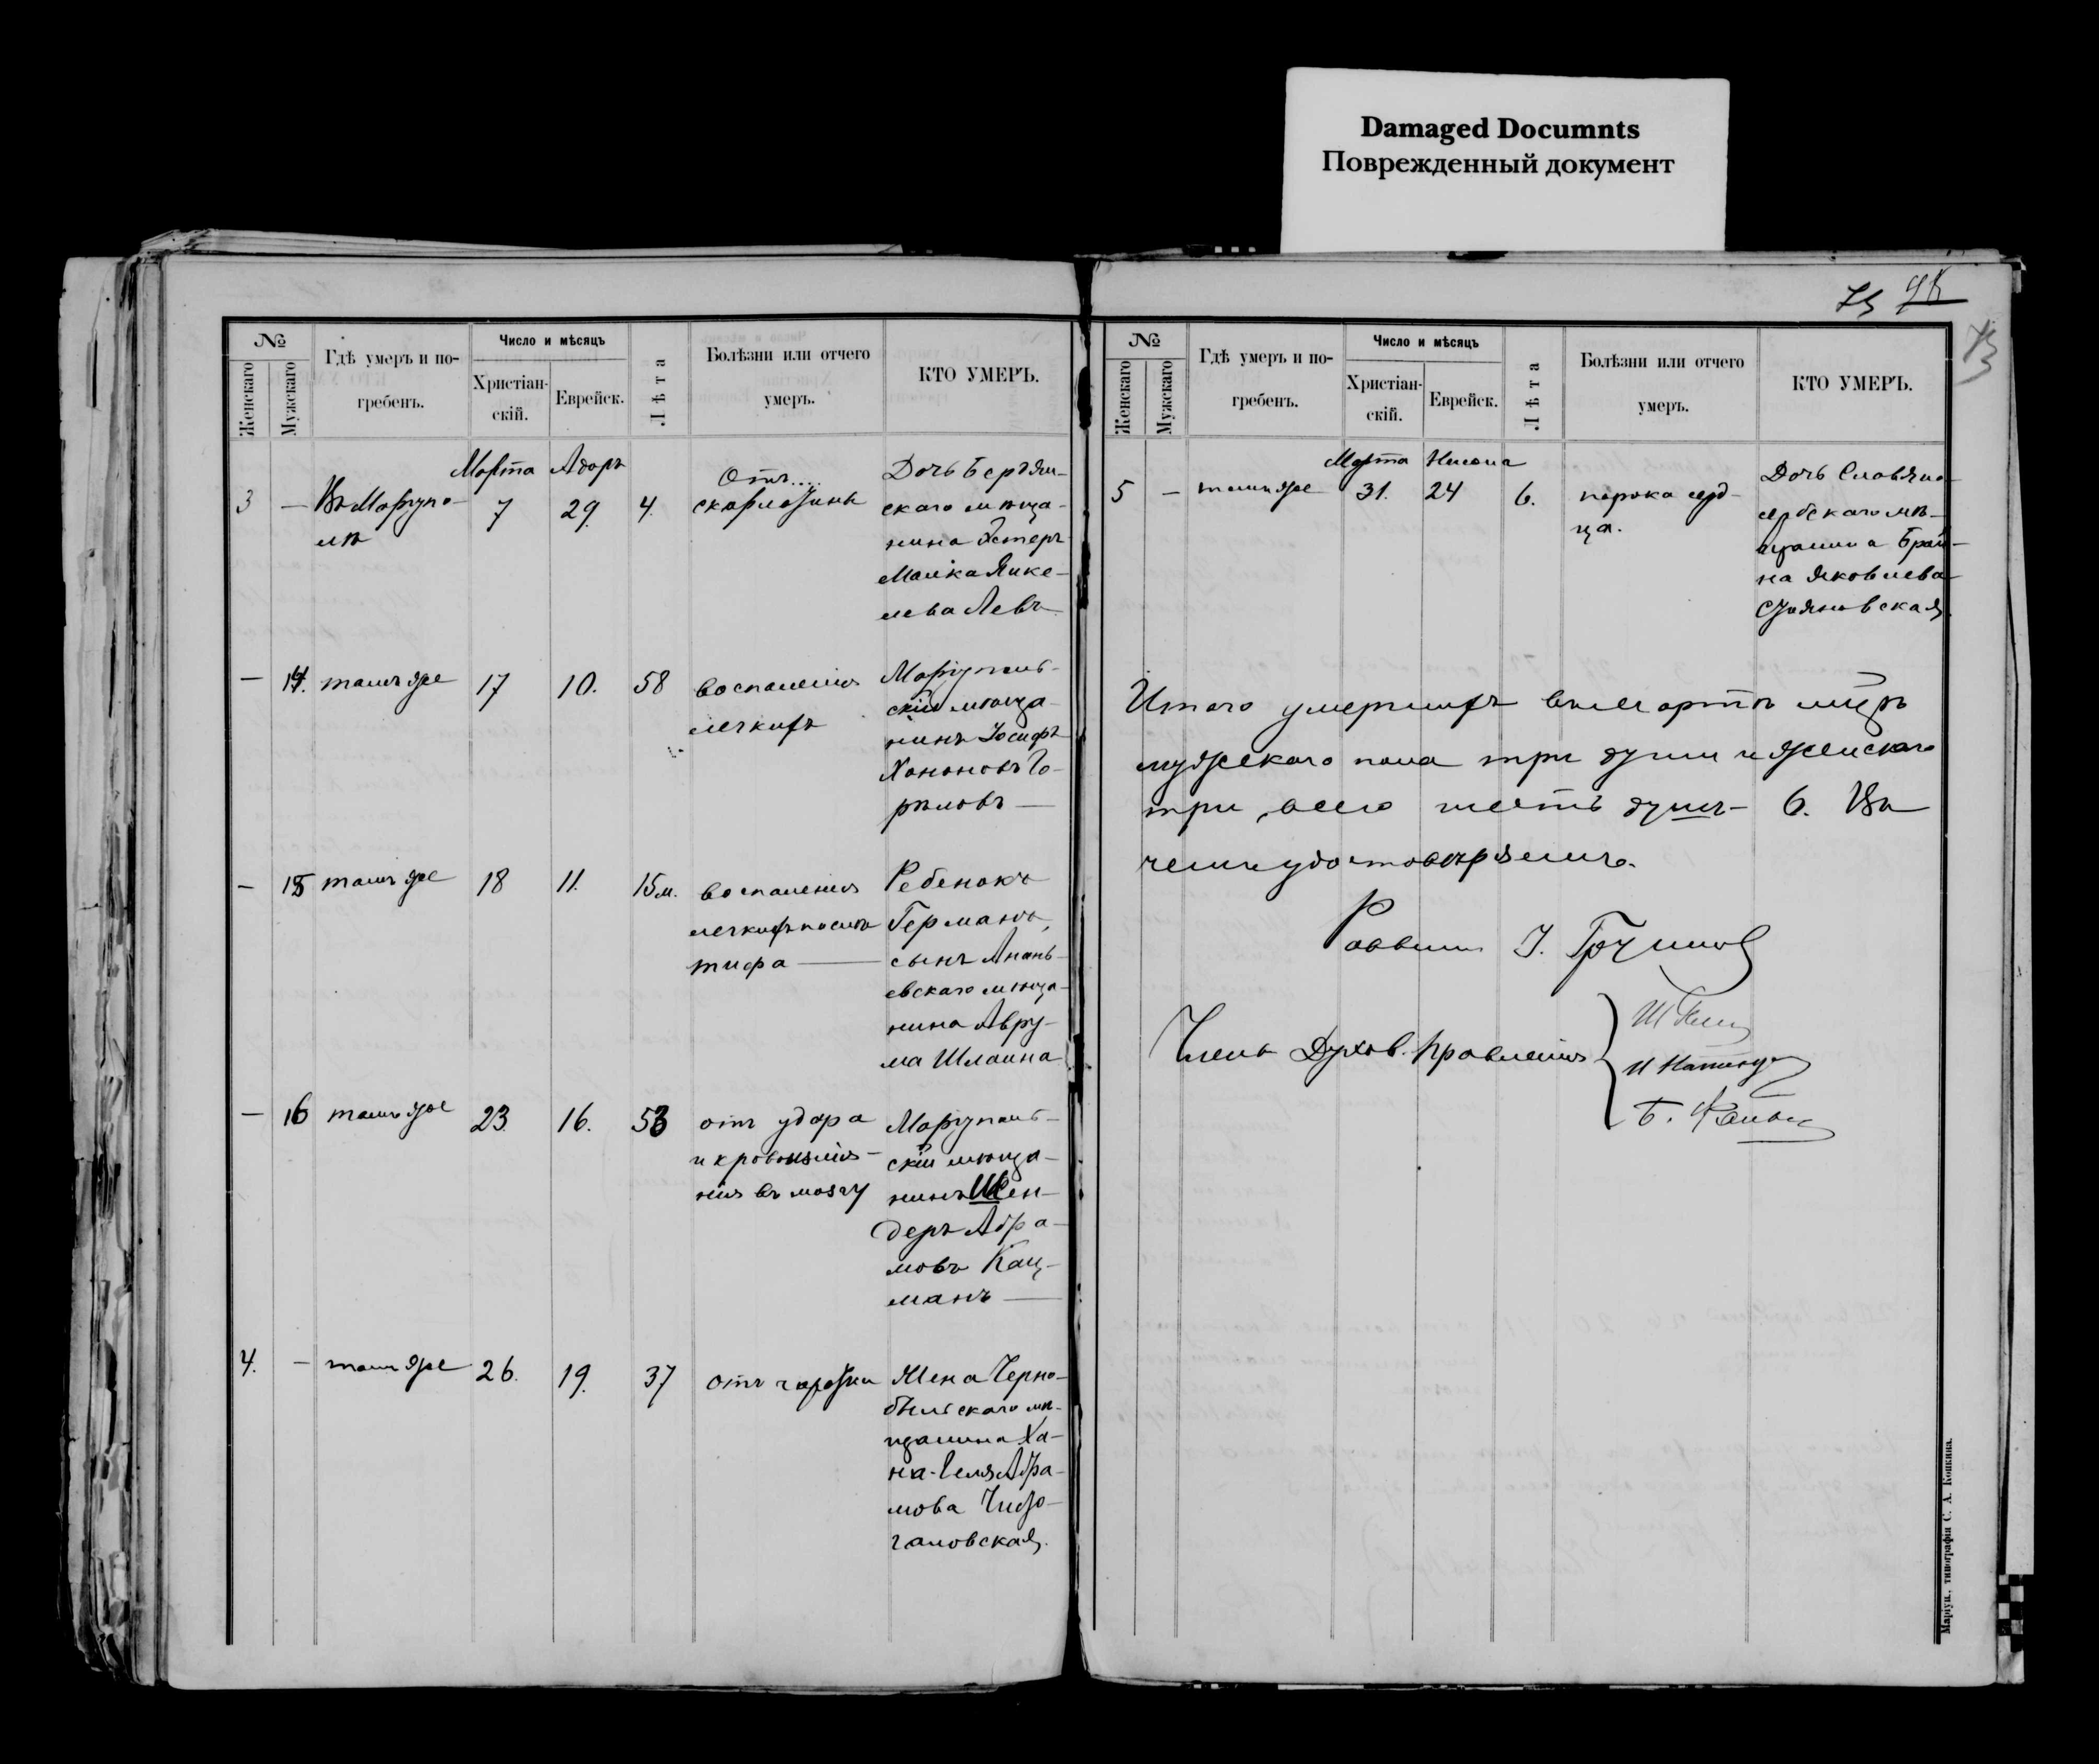 Damaged Documnts
Поврежденный документ
№
Женскаго
Мужскаго
Гдѣ умеръ и по-
гребенъ.
Число и мѣсяцъ
Христіан-
скій.
Еврейск.
Лѣта
Болѣзни или отчего
умеръ.
КТО УМЕРЪ.
Марта Адаръ
3 — Въ Маріупо-
лѣ
7 29. 4.
Отъ....
скарлатины
Дочь Бердян-
скаго мѣща-
нина Эстеръ
Малка Янке-
лева Левъ
— 14. тамъ же 17 10. 58
воспаленія
легкихъ
Маріуполь-
скій мѣща-
нинъ Іосифъ
Ханоновъ Го-
рѣловъ —
— 15 тамъ же 18 11. 15 м.
воспаленія
легкихъ послѣ
тифа —
Ребенокъ
Германъ,
сынъ Анань-
евскаго мѣща-
нина Авру-
ма Шлаина
— 16 тамъ же 23. 16. 53
отъ удара
и кровоизлія-
нія въ мозгу
Маріуполь-
скій мѣща-
нинъ Шен-
деръ Абра-
мовъ Кац-
манъ —
4. — тамъ же 26. 19. 37
отъ чахотки
Жена Черно-
быльскаго мѣ-
щанина Ха-
на-Геля Абра-
мова
галовская.
№
Женскаго
Мужскаго
Гдѣ умеръ и по-
гребенъ.
Число и мѣсяцъ
Христіан-
скій.
Еврейск.
Лѣта
Болѣзни или отчего
умеръ.
КТО УМЕРЪ.
Марта Нисона
5 — тамъ же 31. 24 6.
порока серд-
ца.
Дочь Славяно-
сербскаго мѣ-
щанина Брай-
на Яковлева
Стояновская.
Итого умершихъ въ мартѣ мцѣ
мужескаго пола три души и женскаго
три, всего шесть душъ — 6. Въ
чемъ удостовѣряемъ.
Раввинъ
Члены Духов. Правленія
Маріуп., типографія С. А. Копкина.